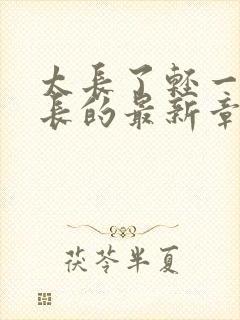 太長了輕一
長的最新章
茯苓半夏